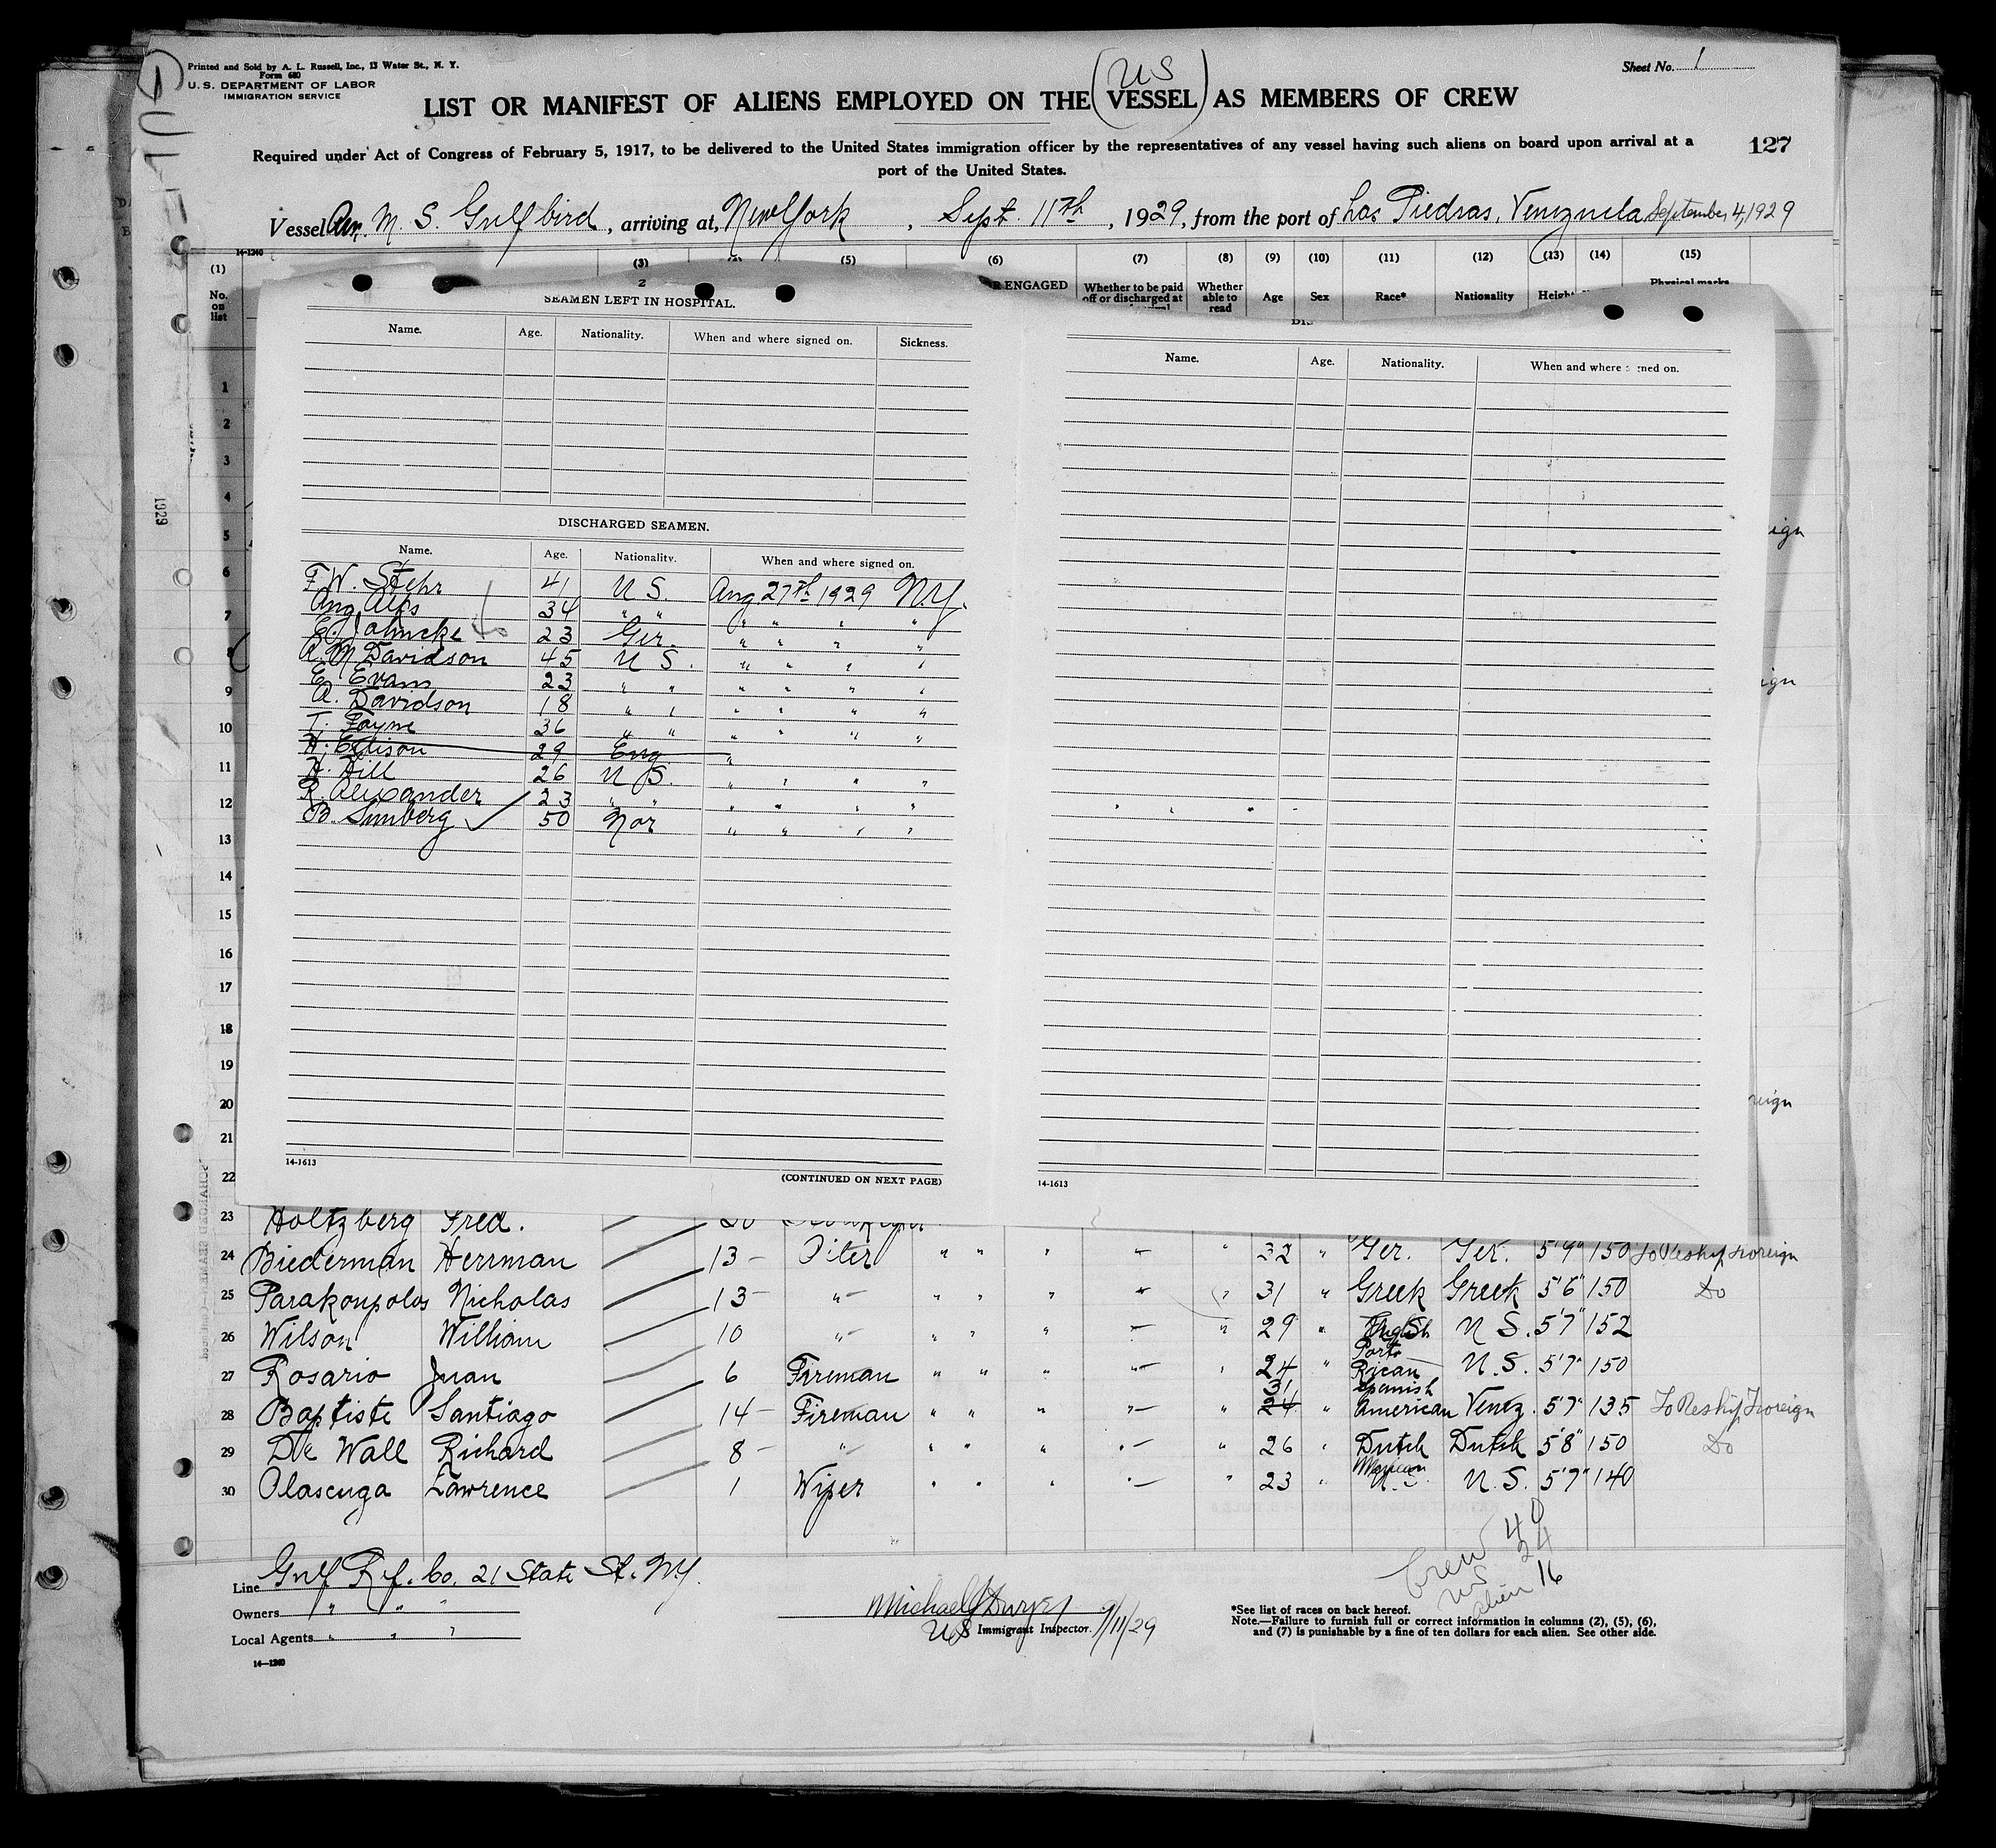 Printed and Sold by A. L. Russell, Inc., 13 Water St., N. Y.
Form 680
U. S. DEPARTMENT OF LABOR
IMMIGRATION SERVICE
Sheet No. 1
(US)
LIST OR MANIFEST OF ALIENS EMPLOYED ON THE VESSEL AS MEMBERS OF CREW
127
Required under Act of Congress of February 5, 1917, to be delivered to the United States immigration officer by the representatives of any vessel having such aliens on board upon arrival at a
port of the United States.
Vessel Am. M. S. Gulfbird, arriving at, New York, Sept. 11th, 1929, from the port of Las Piedras, Venezuela September 4, 1929
14-1240
(1) (3) (4) (5) (6) (7) (8) (9) (10) (11) (12) (13) (14) (15)
No. on list
ENGAGED
Whether to be paid off or discharged at
Whether able to read
Age
Sex
Race*
Nationality
Height
Physical marks
SEAMEN LEFT IN HOSPITAL.
Name. Age. Nationality. When and where signed on. Sickness.
DISCHARGED SEAMEN.
Name. Age. Nationality. When and where signed on.
F. W. Stehr 41 U S. Aug 27th 1929 N.Y.
Aug Alps 34 " " " " " "
E. Jahncke 23 Ger. " " " "
A. M Davidson 45 U S. " " " "
E. Evans 23 " " " " " "
A. Davidson 18 " " " " " "
T. Payne 36 " " " " " "
H. Edison 29 Eng "
H. Hill 26 U S. " " " "
R. Alexander 23 " " " " " "
B. Simberg 50 Nor " " " "
14-1613
(CONTINUED ON NEXT PAGE)
Name. Age. Nationality. When and where signed on.
14-1613
1
2
3
4
5
6
7
8
9
10
11
12
13
14
15
16
17
18
19
20
21
22
1929
ign
ign
reign
23 Holtzberg Fred.
24 Biederman Herrman 13 Oiler " " " " " 32 " Ger. Ger. 5'9" 150 To Reship Foreign
25 Parakoupolos Nicholas 13 " " " " " " 31 " Greek Greek 5'6" 150 Do
26 Wilson William 10 " " " " " " 29 " English U S. 5'7" 152
27 Rosario Juan 6 Fireman " " " " " 24 " Porto Rican U. S. 5'7" 150
28 Baptiste Santiago 14 Fireman " " " " " 31 24 " Spanish American Venez. 5'7" 135 To Reship Foreign
29 De Wall Richard 8 " " " " " " 26 " Dutch Dutch 5'8" 150 Do
30 Olascuga Lawrence 1 Wiper " " " " " 23 " Mexican U. S. 5'7" 140
Crew 40
US 24
Alien 16
Line Gulf Ref. Co. 21 State St. N.Y.
Owners " " "
Local Agents " " "
14—1240
Michael J Dwyer
US Immigrant Inspector. 9/11/29
*See list of races on back hereof.
Note.—Failure to furnish full or correct information in columns (2), (5), (6),
and (7) is punishable by a fine of ten dollars for each alien. See other side.